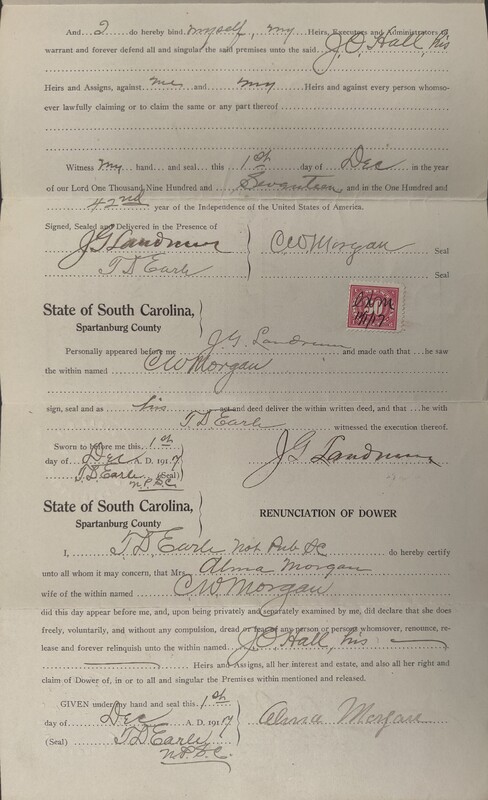 And I do hereby bind myself, my Heirs, Executors and Administrators to
warrant and forever defend all and singular the said premises unto the said J.O. Hall, his
Heirs and Assigns, against me and my Heirs and against every person whomso-
ever lawfully claiming or to claim the same or any part thereof
Witness my hand and seal this 1st day of Dec in the year
of our Lord One Thousand Nine Hundred and Seventeen and in the One Hundred and
42nd year of the Independence of the United States of America.
Signed, Sealed and Delivered in the Presence of
J G Landrum
CW Morgan Seal
T D Earle
Seal
State of South Carolina,
Spartanburg County
Personally appeared before me J. G. Landrum and made oath that he saw
the within named CW Morgan
sign, seal and as his act and deed deliver the within written deed, and that he with
T D Earle witnessed the execution thereof.
Sworn to before me this 1st
day of Dec A. D. 1917
T D Earle (Seal)
J G Landrum
State of South Carolina,
Spartanburg County
RENUNCIATION OF DOWER
I, T D Earle Not Pub SC do hereby certify
unto all whom it may concern, that Mrs. Alma Morgan
wife of the within named CW Morgan
did this day appear before me, and, upon being privately and separately examined by me, did declare that she does
freely, voluntarily, and without any compulsion, dread or fear of any person or persons whomsoever, renounce, re-
lease and forever relinquish unto the within named J.O Hall, his
Heirs and Assigns, all her interest and estate, and also all her right and
claim of Dower, in or to all and singular the Premises within mentioned and released.
GIVEN under my hand and seal this 1st
day of Dec A. D. 1917
Alma Morgan
(Seal) T D Earle